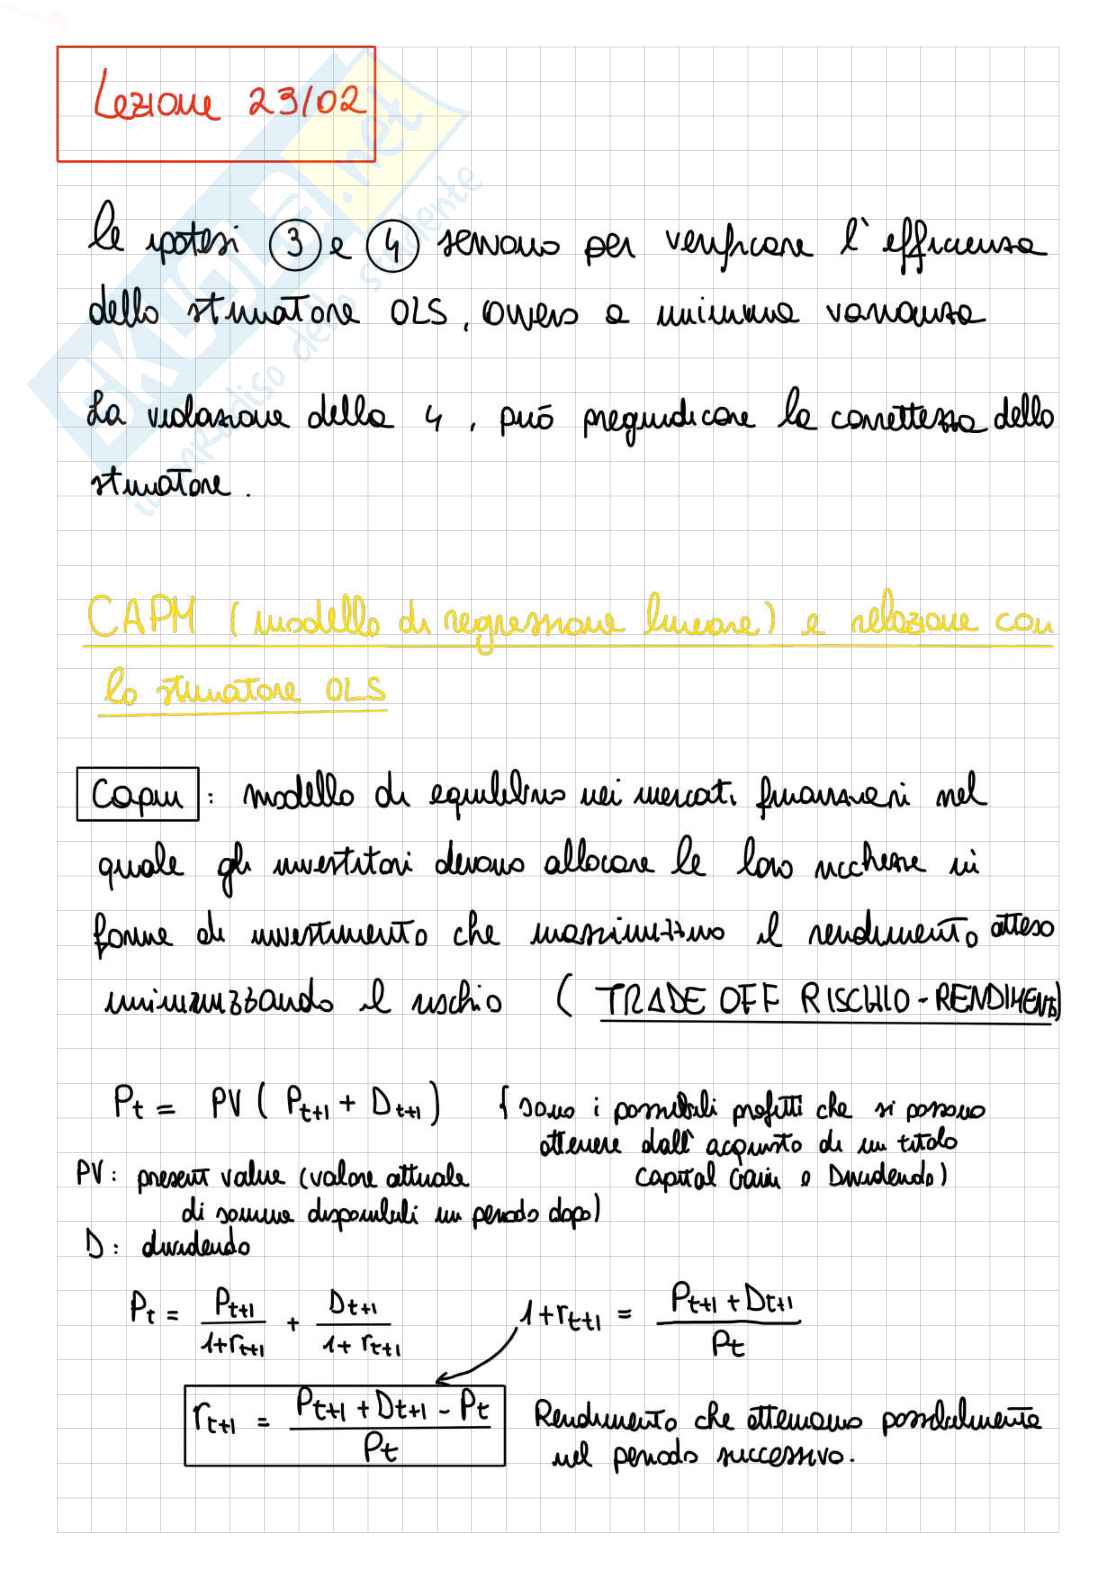 Lezione 23/02
le ipotesi ③ e ④ servono per verificare l'efficienza
dello stimatore OLS, ovvero a minima varianza
La violazione della 4, può pregiudicare la correttezza dello
stimatore.
CAPM (modello di regressione lineare) e relazione con
lo stimatore OLS
Capm : modello di equilibrio nei mercati finanziari nel
quale gli investitori devono allocare le loro ricchezze in
forme di investimento che massimizzino il rendimento atteso
minimizzando il rischio ( TRADE OFF RISCHIO-RENDIMENTO)
Pt = PV ( Pt+1 + Dt+1 ) { sono i possibili profitti che si possono
ottenere dall'acquisto di un titolo
PV: present value (valore attuale capital Gain e Dividendo)
di somme disponibili un periodo dopo)
D: dividendo
Pt = Pt+1 / 1+rt+1 + Dt+1 / 1+rt+1 1+rt+1 = Pt+1 + Dt+1 / Pt
rt+1 = Pt+1 + Dt+1 - Pt / Pt Rendimento che otteniamo possibilmente
nel periodo successivo.
SKUOLA.net
il paradiso dello studente